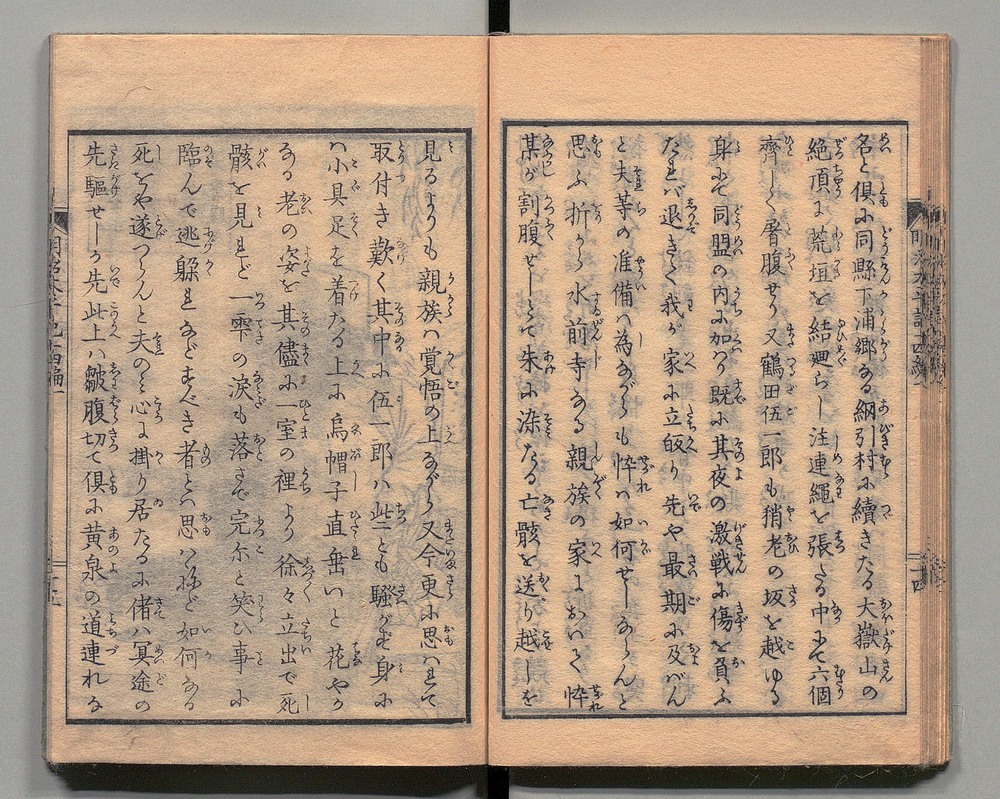 名と倶に同縣下浦郷なる網引村に續きたる大嶽山の
絶頂に荒垣を結廻らし注連繩を張たる中にて六個
齊しく屠腹せり又鶴田伍一郎も稍老の坂を越ゆる
身にて同盟の内に加り既に其夜の激戦に傷を負ふ
たれバ退きて我が家に立皈り先や最期に及バん
と夫等の准備ハ為ながらも忰ハ如何せしならんと
思ふ折から水前寺なる親族の家において忰
某が割腹せしとて朱に染たる亡骸を送り越しを
見るよりも親族ハ覚悟の上ながら又今更に思ハれて
取付き歎く其中に伍一郎ハ些とも騒がず身に
ハ小具足を着たる上に烏帽子直垂いと花やか
なる老の姿を其儘に一室の裡より徐々立出で死
骸を見れど一雫の涙も落さで完尓と笑ひ事に
臨んで逃躱れなどすべき者とハ思ハねど如何なる
死をや遂つらんと夫のミ心に掛り居たるに偖ハ冥途の
先驅せしか先此上ハ皺腹切て倶に黄泉の道連れな
十四